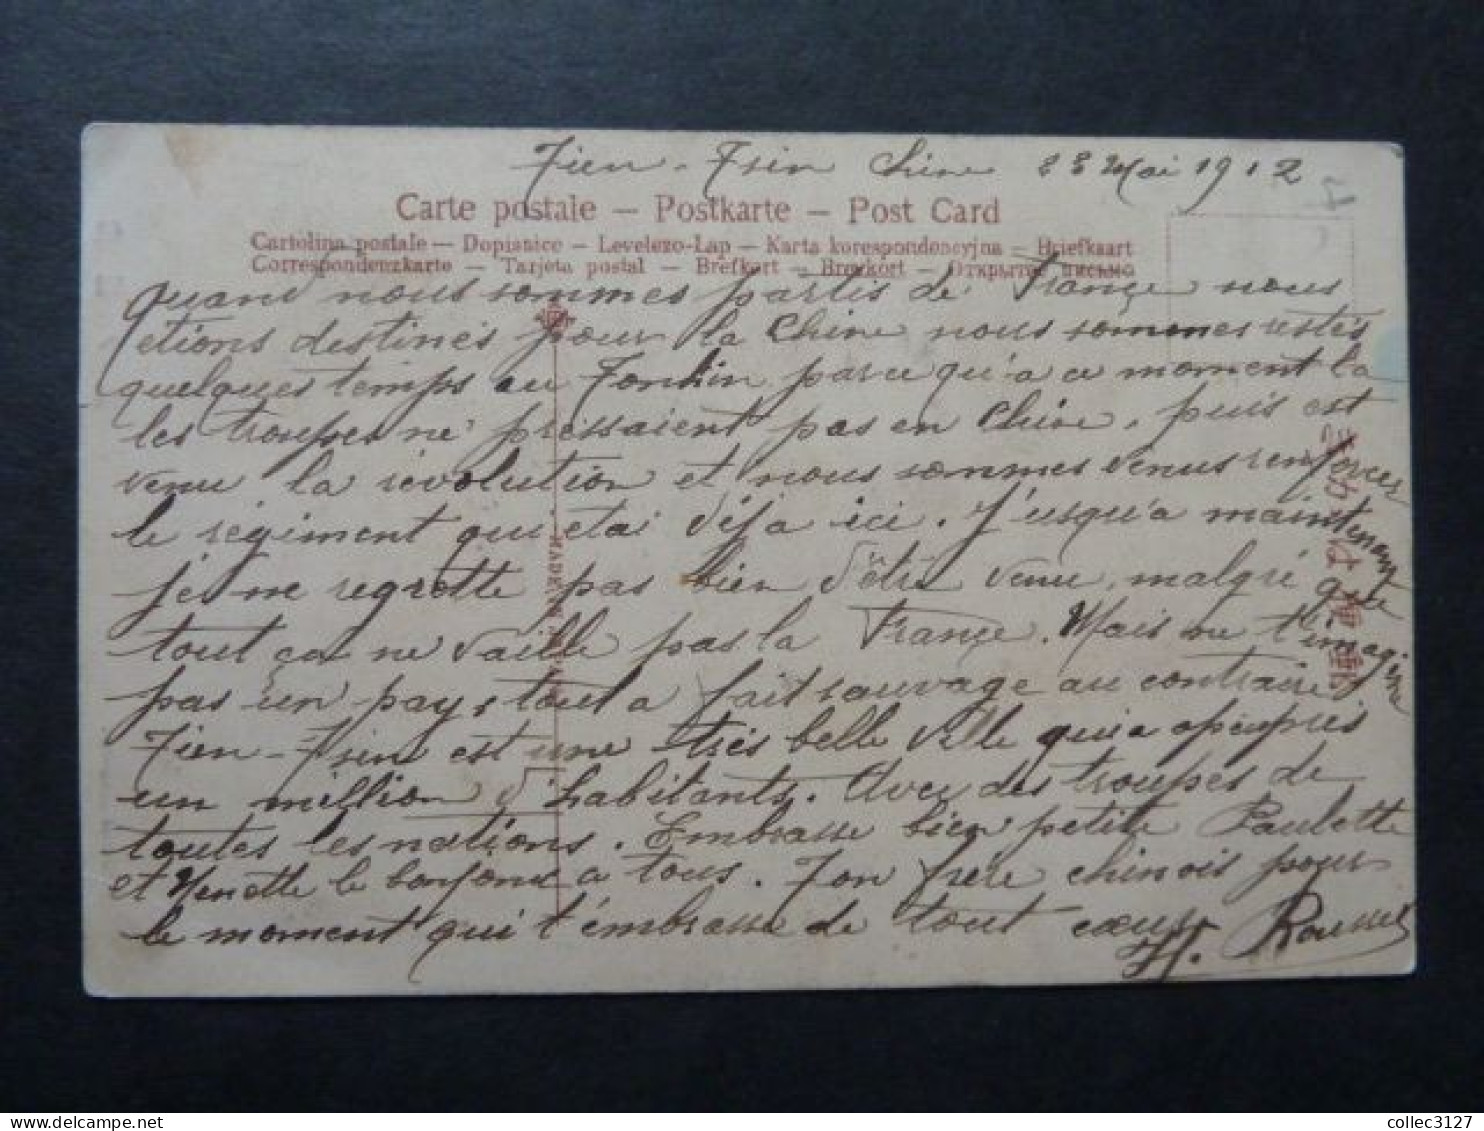 Tien-Tsin Chine 23 Mai 1912
Carte postale — Postkarte — Post Card
Cartolina postale — Dopisnice — Levelezo-Lap — Karta korespondencyjna — Briefkaart
Correspondenzkarte — Tarjeta postal — Brefkort — Brevkort — Открытое письмо
quand nous sommes partis de France nous
etions destinés pour la Chine nous sommes restés
quelques temps au Tonkin parce qu'a ce moment la
les troupes ne pressaient pas en Chine, puis est
venu la révolution et nous sommes venus renforcer
le régiment qui etai déja ici. J'usqu'a maintenant
je ne regrette pas bien d'être venu, malgré que
tout ça ne vaille pas la France. Mais ne t'imagine
pas un pays tout a fait sauvage au contraire
Tien-Tsin est une très belle ville qui a apeuprès
un million d'habitants. Avec des troupes de
toutes les nations. Embrasse bien petite Paulette
et Nenette le bonjour a tous. Ton frère chinois pour
le moment qui t'embrasse de tout coeur
H. Roussel
MADE IN
collec3127